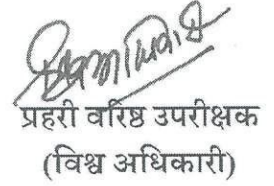 प्रहरी वरिष्ठ उपरीक्षक
(विश्व अधिकारी)